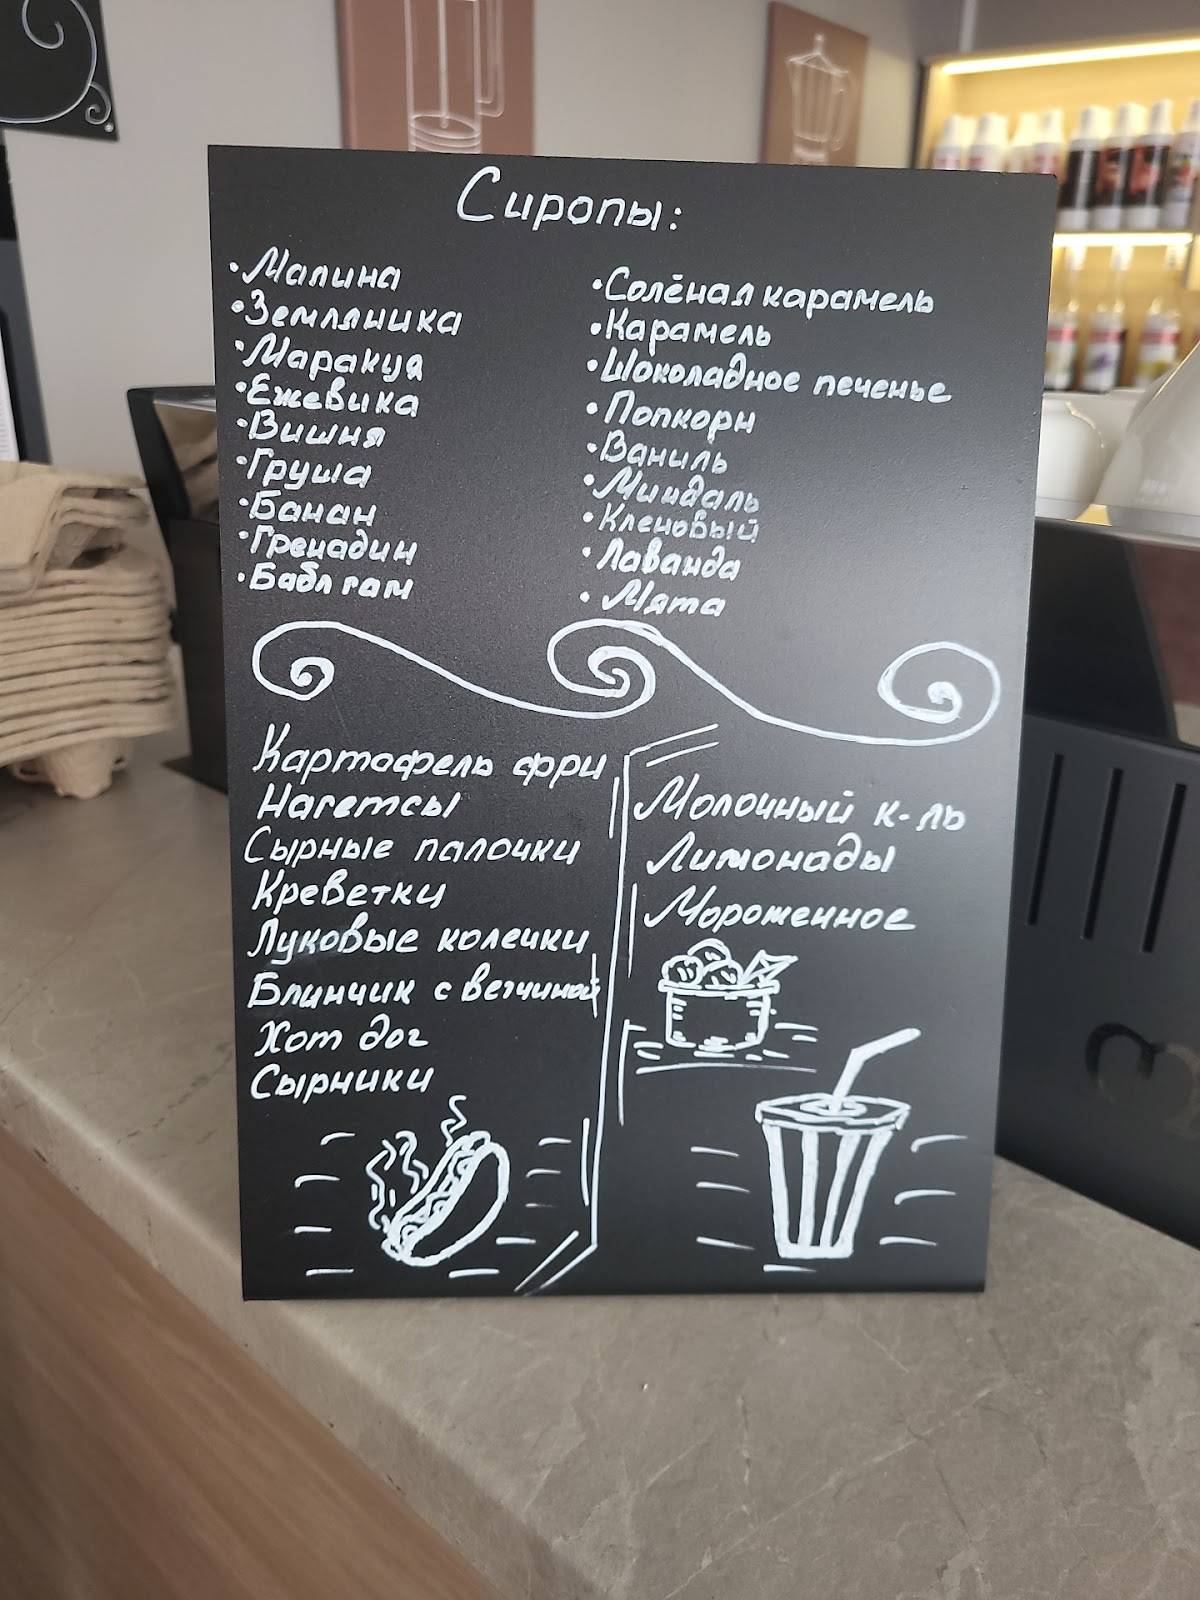 Сиропы:
•Малина
•Земляника
•Маракуя
•Ежевика
•Вишня
•Груша
•Банан
•Гренадин
•Бабл гам
•Солёная карамель
•Карамель
•Шоколадное печенье
•Попкорн
•Ваниль
•Миндаль
•Кленовый
•Лаванда
•Мята
Картофель фри
Нагетсы
Сырные палочки
Креветки
Луковые колечки
Блинчик с ветчиной
Хот дог
Сырники
Молочный к-ль
Лимонады
Мороженное
3